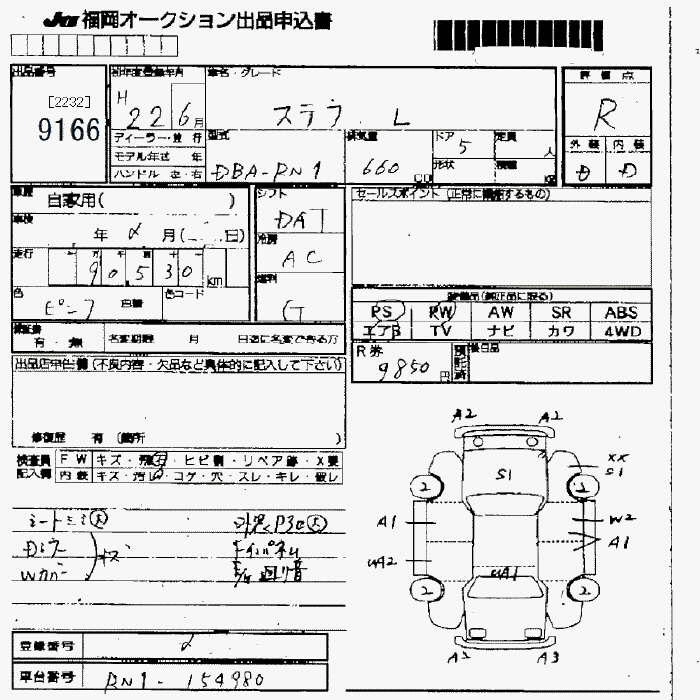 JAA 福岡オークション出品申込書
出品番号
[2232]
9166
初年度登録年月
H 22 6月
車名・グレード
ステラ L
評価点
R
ディーラー・並行
モデル年式 年
ハンドル 左・右
型式
DBA-RN1
排気量
660 CC
ドア 5
形状
定員 人
積載 KG
外装 内装
D D
車歴 自家用( )
車検 年 月( 日)
走行 90,530 km
色 ピンク
色コード
シフト
DAT
冷房
AC
燃料
G
セールスポイント (正常に機能するもの)
装備品(純正品に限る)
PS PW AW SR ABS
エアB TV ナビ カワ 4WD
R券
9850円
預託済
後日品
保証書 有・無
名変期限 月 日迄に名変できる方
出品店申告欄 (不良内容・欠品など具体的に記入して下さい)
修復歴 有 (箇所 )
検査員 FW キズ・飛石・ヒビ割・リペア跡・X要
記入欄 内装 キズ・汚レ・コゲ・穴・スレ・キレ・破レ
シートシミ大
キズ
Wカバー
A2 A2
S1
XX
S1
2 2
A1
W2
A1
UA2
UA1
2 2
A2 A3
登録番号
車台番号 RN1-154980